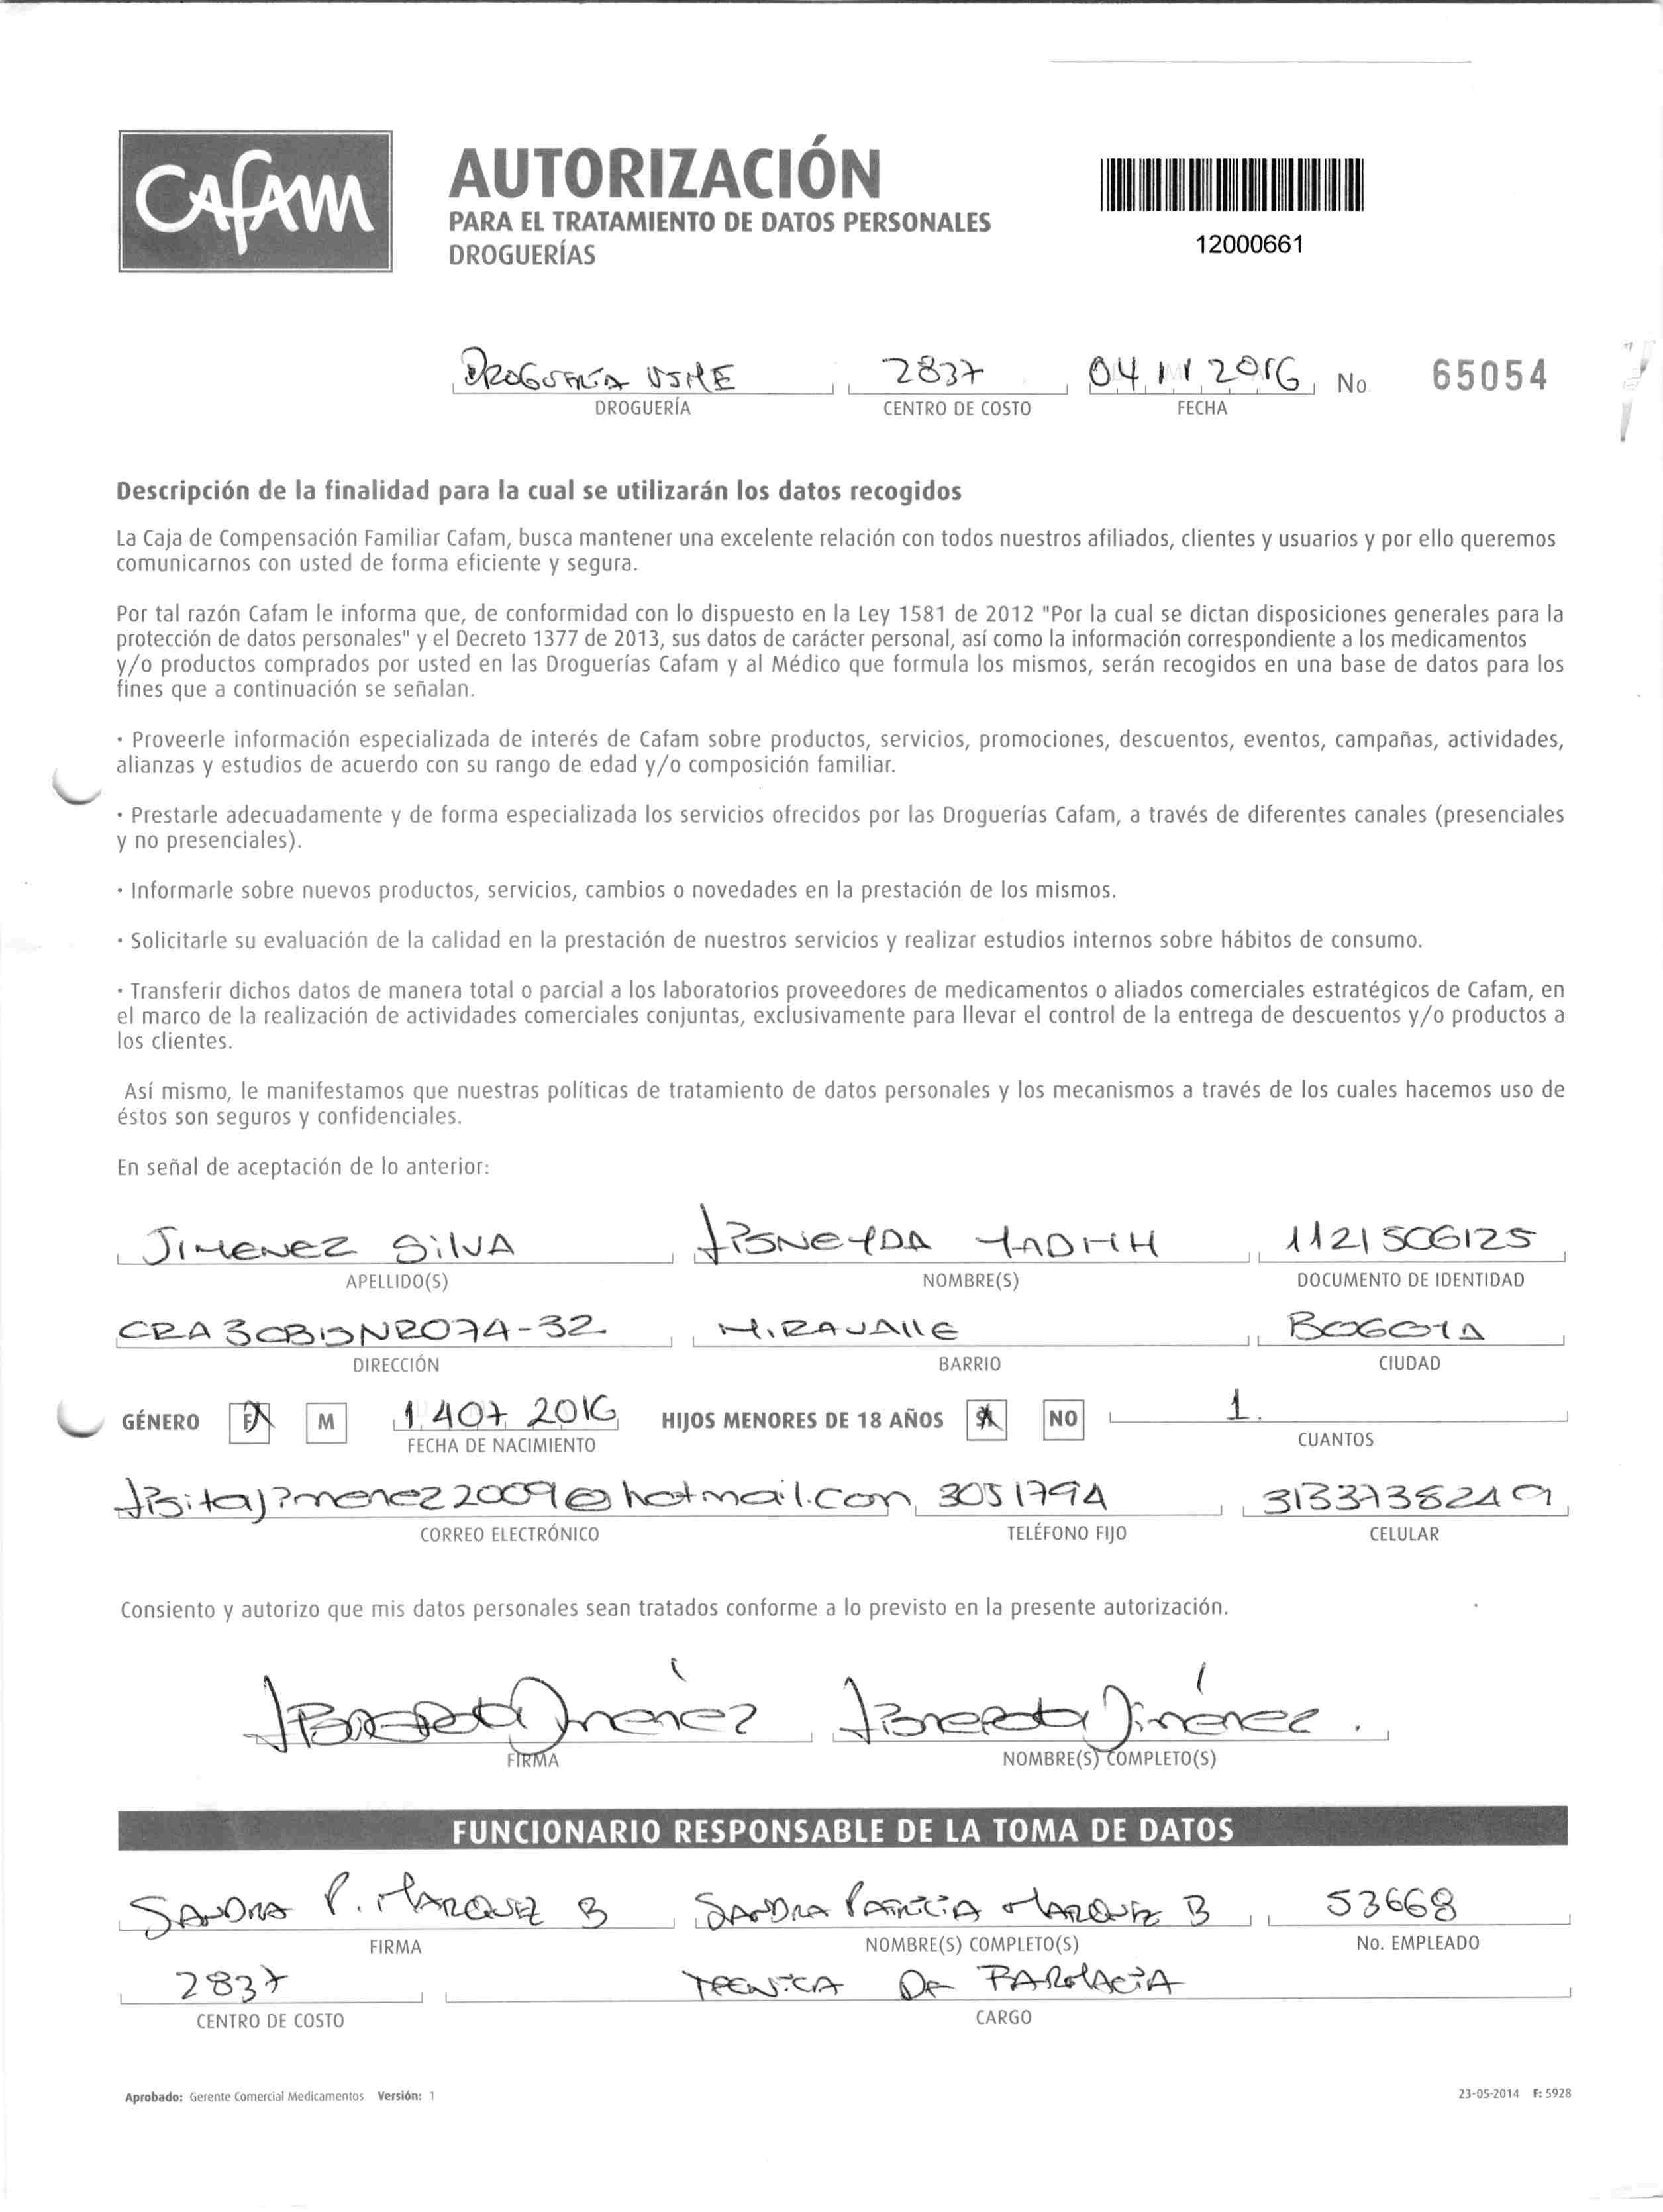 CAFAM
AUTORIZACIÓN
PARA EL TRATAMIENTO DE DATOS PERSONALES
DROGUERÍAS
12000661
DROGUERÍA USME 2837 04 11 2016 No 65054
DROGUERÍA CENTRO DE COSTO FECHA
Descripción de la finalidad para la cual se utilizarán los datos recogidos
La Caja de Compensación Familiar Cafam, busca mantener una excelente relación con todos nuestros afiliados, clientes y usuarios y por ello queremos
comunicarnos con usted de forma eficiente y segura.
Por tal razón Cafam le informa que, de conformidad con lo dispuesto en la Ley 1581 de 2012 "Por la cual se dictan disposiciones generales para la
protección de datos personales" y el Decreto 1377 de 2013, sus datos de carácter personal, así como la información correspondiente a los medicamentos
y/o productos comprados por usted en las Droguerías Cafam y al Médico que formula los mismos, serán recogidos en una base de datos para los
fines que a continuación se señalan.
· Proveerle información especializada de interés de Cafam sobre productos, servicios, promociones, descuentos, eventos, campañas, actividades,
alianzas y estudios de acuerdo con su rango de edad y/o composición familiar.
· Prestarle adecuadamente y de forma especializada los servicios ofrecidos por las Droguerías Cafam, a través de diferentes canales (presenciales
y no presenciales).
· Informarle sobre nuevos productos, servicios, cambios o novedades en la prestación de los mismos.
· Solicitarle su evaluación de la calidad en la prestación de nuestros servicios y realizar estudios internos sobre hábitos de consumo.
· Transferir dichos datos de manera total o parcial a los laboratorios proveedores de medicamentos o aliados comerciales estratégicos de Cafam, en
el marco de la realización de actividades comerciales conjuntas, exclusivamente para llevar el control de la entrega de descuentos y/o productos a
los clientes.
Así mismo, le manifestamos que nuestras políticas de tratamiento de datos personales y los mecanismos a través de los cuales hacemos uso de
éstos son seguros y confidenciales.
En señal de aceptación de lo anterior:
JIMENEZ SILVA 1121506125
APELLIDO(S) NOMBRE(S) DOCUMENTO DE IDENTIDAD
CRA MIRAVALLE BOGOTA
DIRECCIÓN BARRIO CIUDAD
GÉNERO F M 1 407 2016 HIJOS MENORES DE 18 AÑOS SI NO 1.
FECHA DE NACIMIENTO CUANTOS
3051794
CORREO ELECTRÓNICO TELÉFONO FIJO CELULAR
Consiento y autorizo que mis datos personales sean tratados conforme a lo previsto en la presente autorización.
Jimenez Jimenez.
FIRMA NOMBRE(S) COMPLETO(S)
FUNCIONARIO RESPONSABLE DE LA TOMA DE DATOS
SANDRA P. MARQUEZ B SANDRA PATRICIA MARQUEZ B 53668
FIRMA NOMBRE(S) COMPLETO(S) No. EMPLEADO
2837 TECNICA DE FARMACIA
CENTRO DE COSTO CARGO
Aprobado: Gerente Comercial Medicamentos Versión: 1 23-05-2014 F: 5928